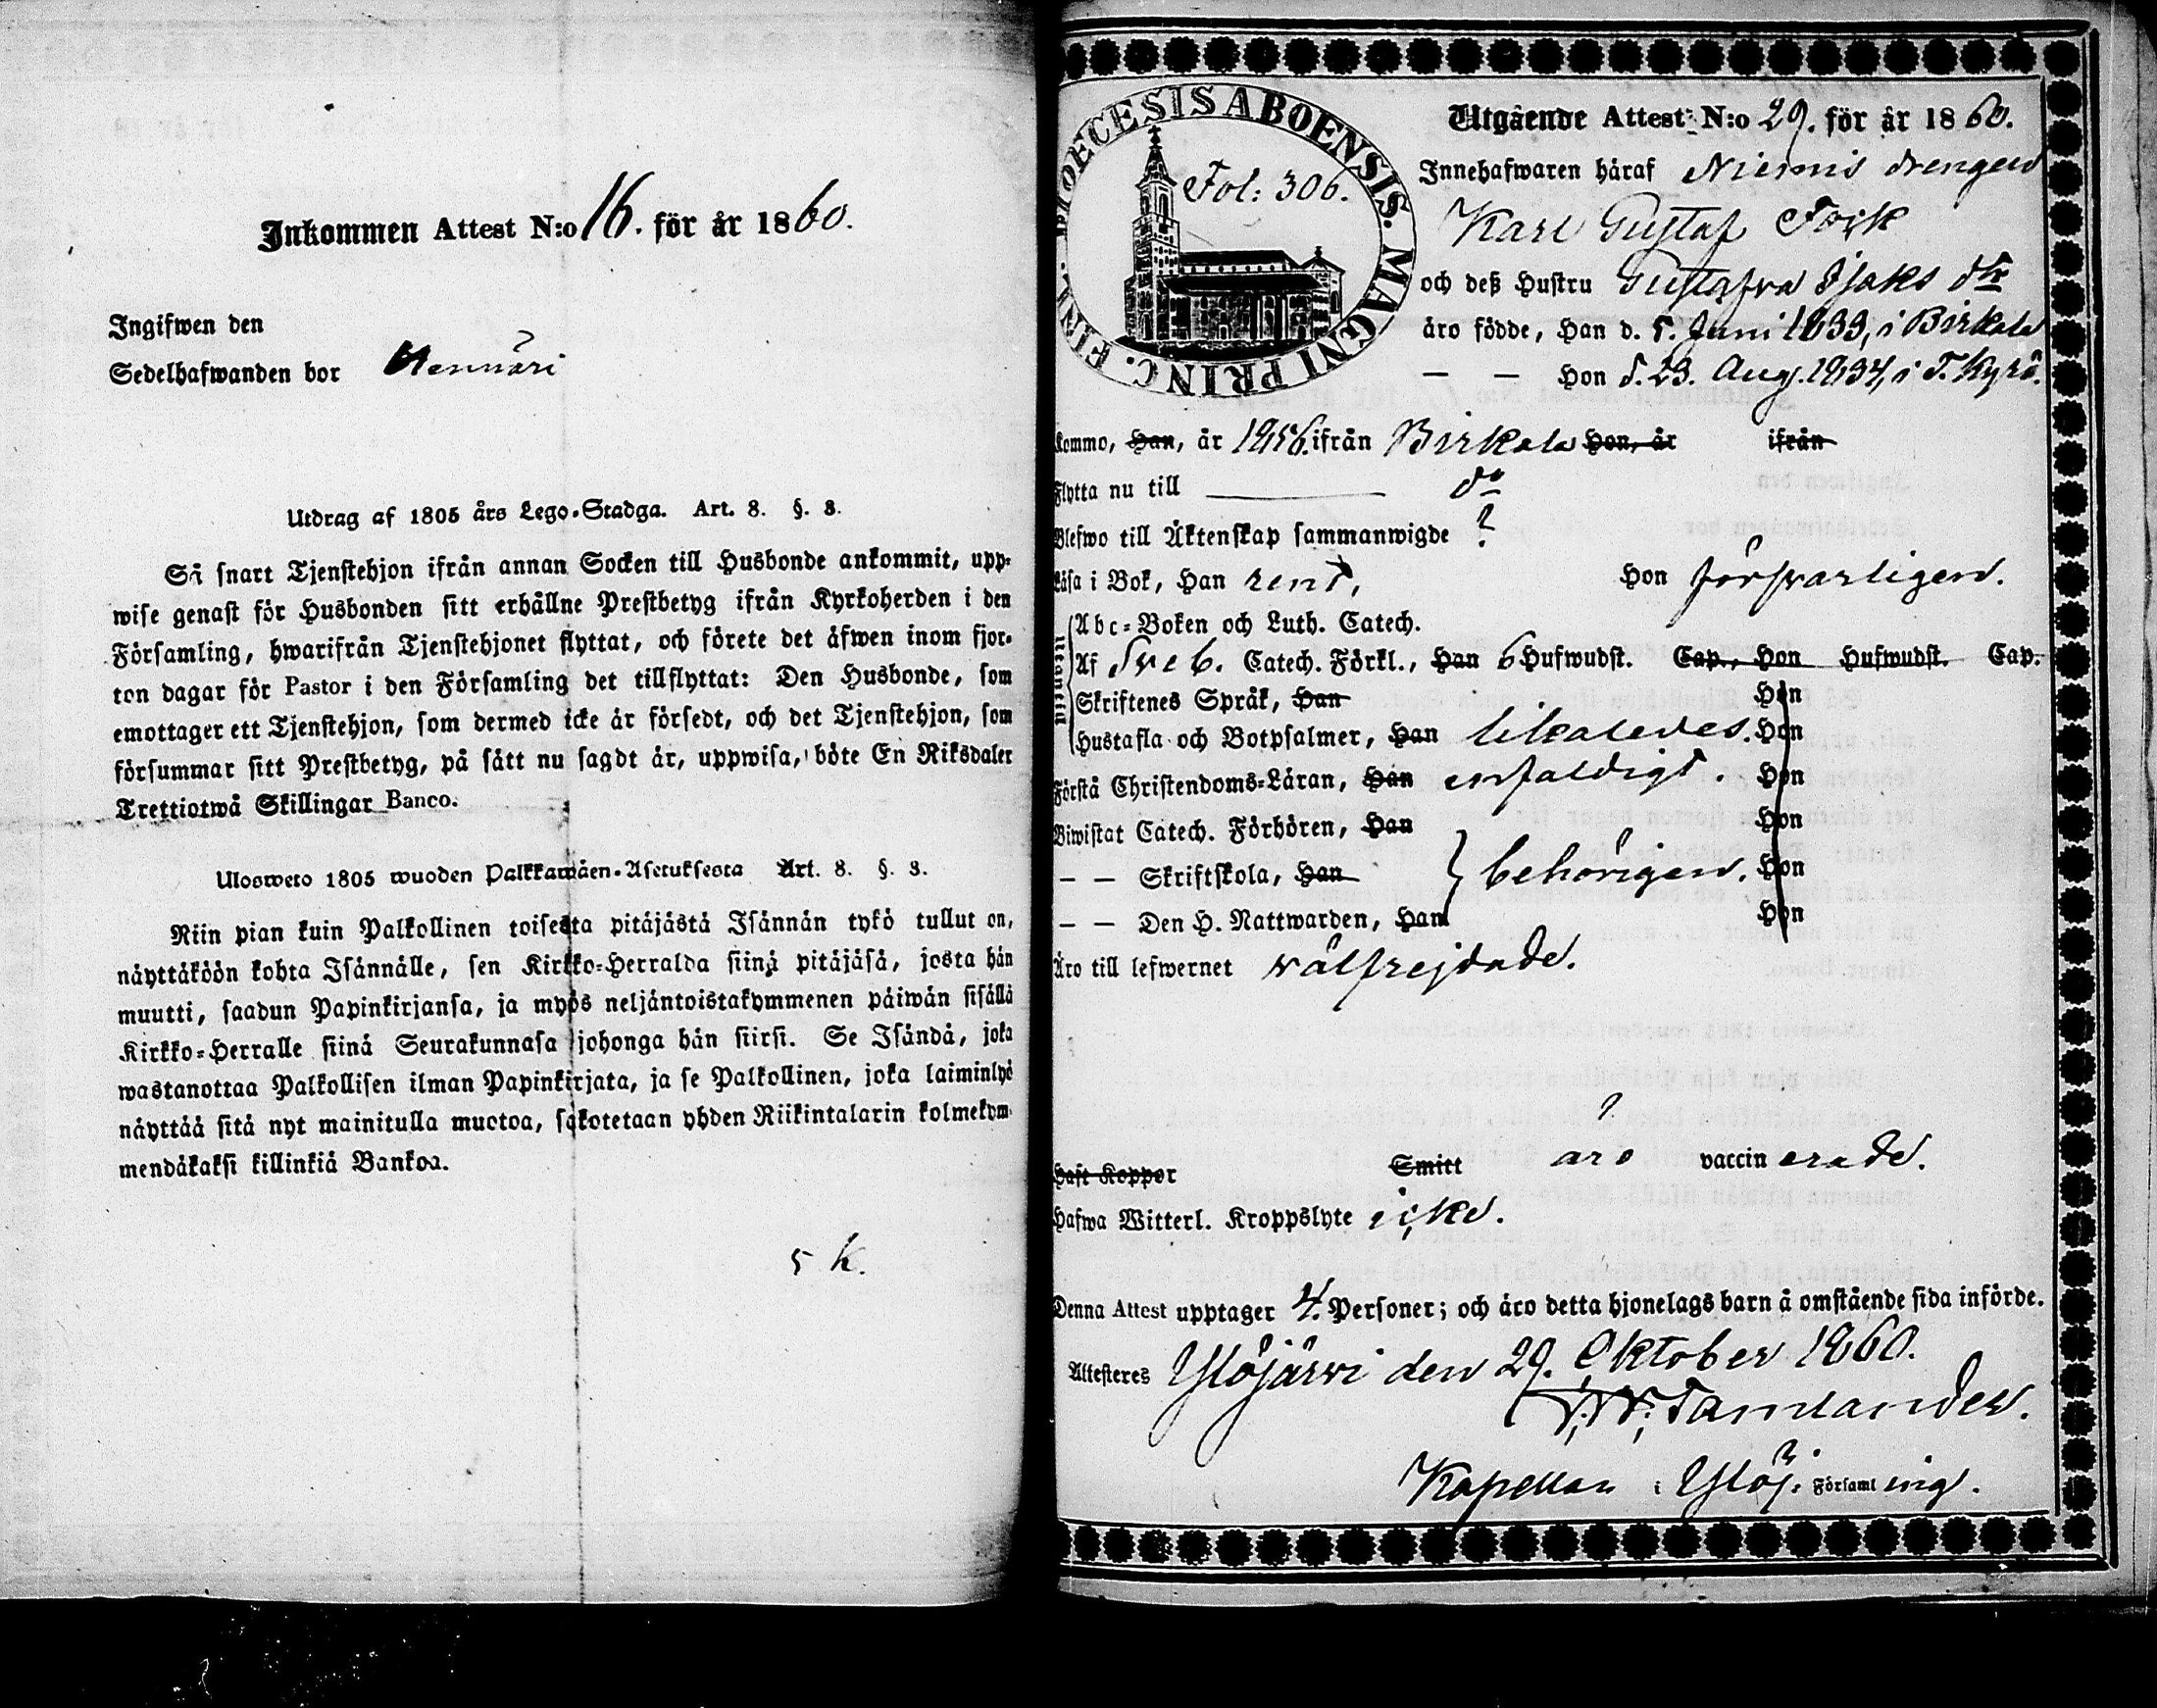 Inkommen Attest N:o 16. för år 1860.
Ingifwen den
Sedelhafwanden bor
Utdrag af 1805 års Lego-Stadga. Art. 8. §. 8.
Så snart Tjenstehjon ifrån annan Socken till Husbonde ankommit, upp-
wise genast för Husbonden sitt erhållne Prestbetyg ifrån Kyrkoherden i den
Församling, hwarifrån Tjenstehjonet flyttat, och förete det äfwen inom fjor-
ton dagar för Pastor i den Församling det tillflyttat: Den Husbonde, som
emottager ett Tjenstehjon, som dermed icke är försedt, och det Tjenstehjon, som
försummar sitt Prestbetyg, på sätt nu sagdt är, uppwisa, böte En Riksdaler
Trettiotwå Skillingar Banco.
Ulosweto 1805 wuoden Palkkawäen-Asetuksesta Art. 8. §. 8.
Niin pian kuin Palkollinen toisesta pitäjästä Isännän tykö tullut on,
näyttäköön kohta Isännälle, sen Kirkko-Herralda siinä pitäjäsä, josta hän
muutti, saadun Papinkirjansa, ja myös neljäntoistakymmenen päiwän sisällä
Kirkko-Herralle siinä Seurakunnasa johonga hän siirsi. Se Isändä, joka
wastanottaa Palkollisen ilman Papinkirjata, ja se Palkollinen, joka laiminlyö
näyttää sitä nyt mainitulla muotoa, sakotetaan yhden Riikintalarin kolmekym-
mendäkaksi killinkiä Bankoa.
5 k.
DIOECESIS ABOENSIS. MAGNI PRINC. FINL.
Fol: 306.
Utgående Attest N:o 29. för år 1860.
Innehafwaren häraf Niemis drengen
Karl Gustaf
och deß Hustru Gustafva Isaks dtr
äro födde, Han d. 5. Juni 1833, i Birkala
— — Hon d. 23. Aug. 1834, i T. Kyrö.
Kommo, Han, år 1856. ifrån Birkala Hon, år ifrån
Flytta nu till do
Blefwo till Äktenskap sammanwigde ?
Läsa i Bok, Han rent, Hon försvarligen.
Utantill
Abc-Boken och Luth. Catech.
Af Sveb. Catech. Förkl., Han 6 Hufwudst. Cap., Hon Hufwudst. Cap.
Skriftenes Språk, Han Hon
Hustafla och Botpsalmer, Han likaledes. Hon
Förstå Christendoms-Läran, Han enfaldigt. Hon
Biwistat Catech. Förhören, Han Hon
— — Skriftskola, Han behörigen. Hon
— — Den H. Nattwarden, Han Hon
Äro till lefwernet välfrejdade.
Haft Koppor Smitt äro vaccinerade.
Hafwa Witterl. Kroppslyte icke.
Denna Attest upptager 4. Personer; och äro detta hjonelags barn å omstående sida införde.
Attesteres Ylöjärvi den 29. Oktober 1860.
Tamlander.
Kapellan i Ylöj. Församling.